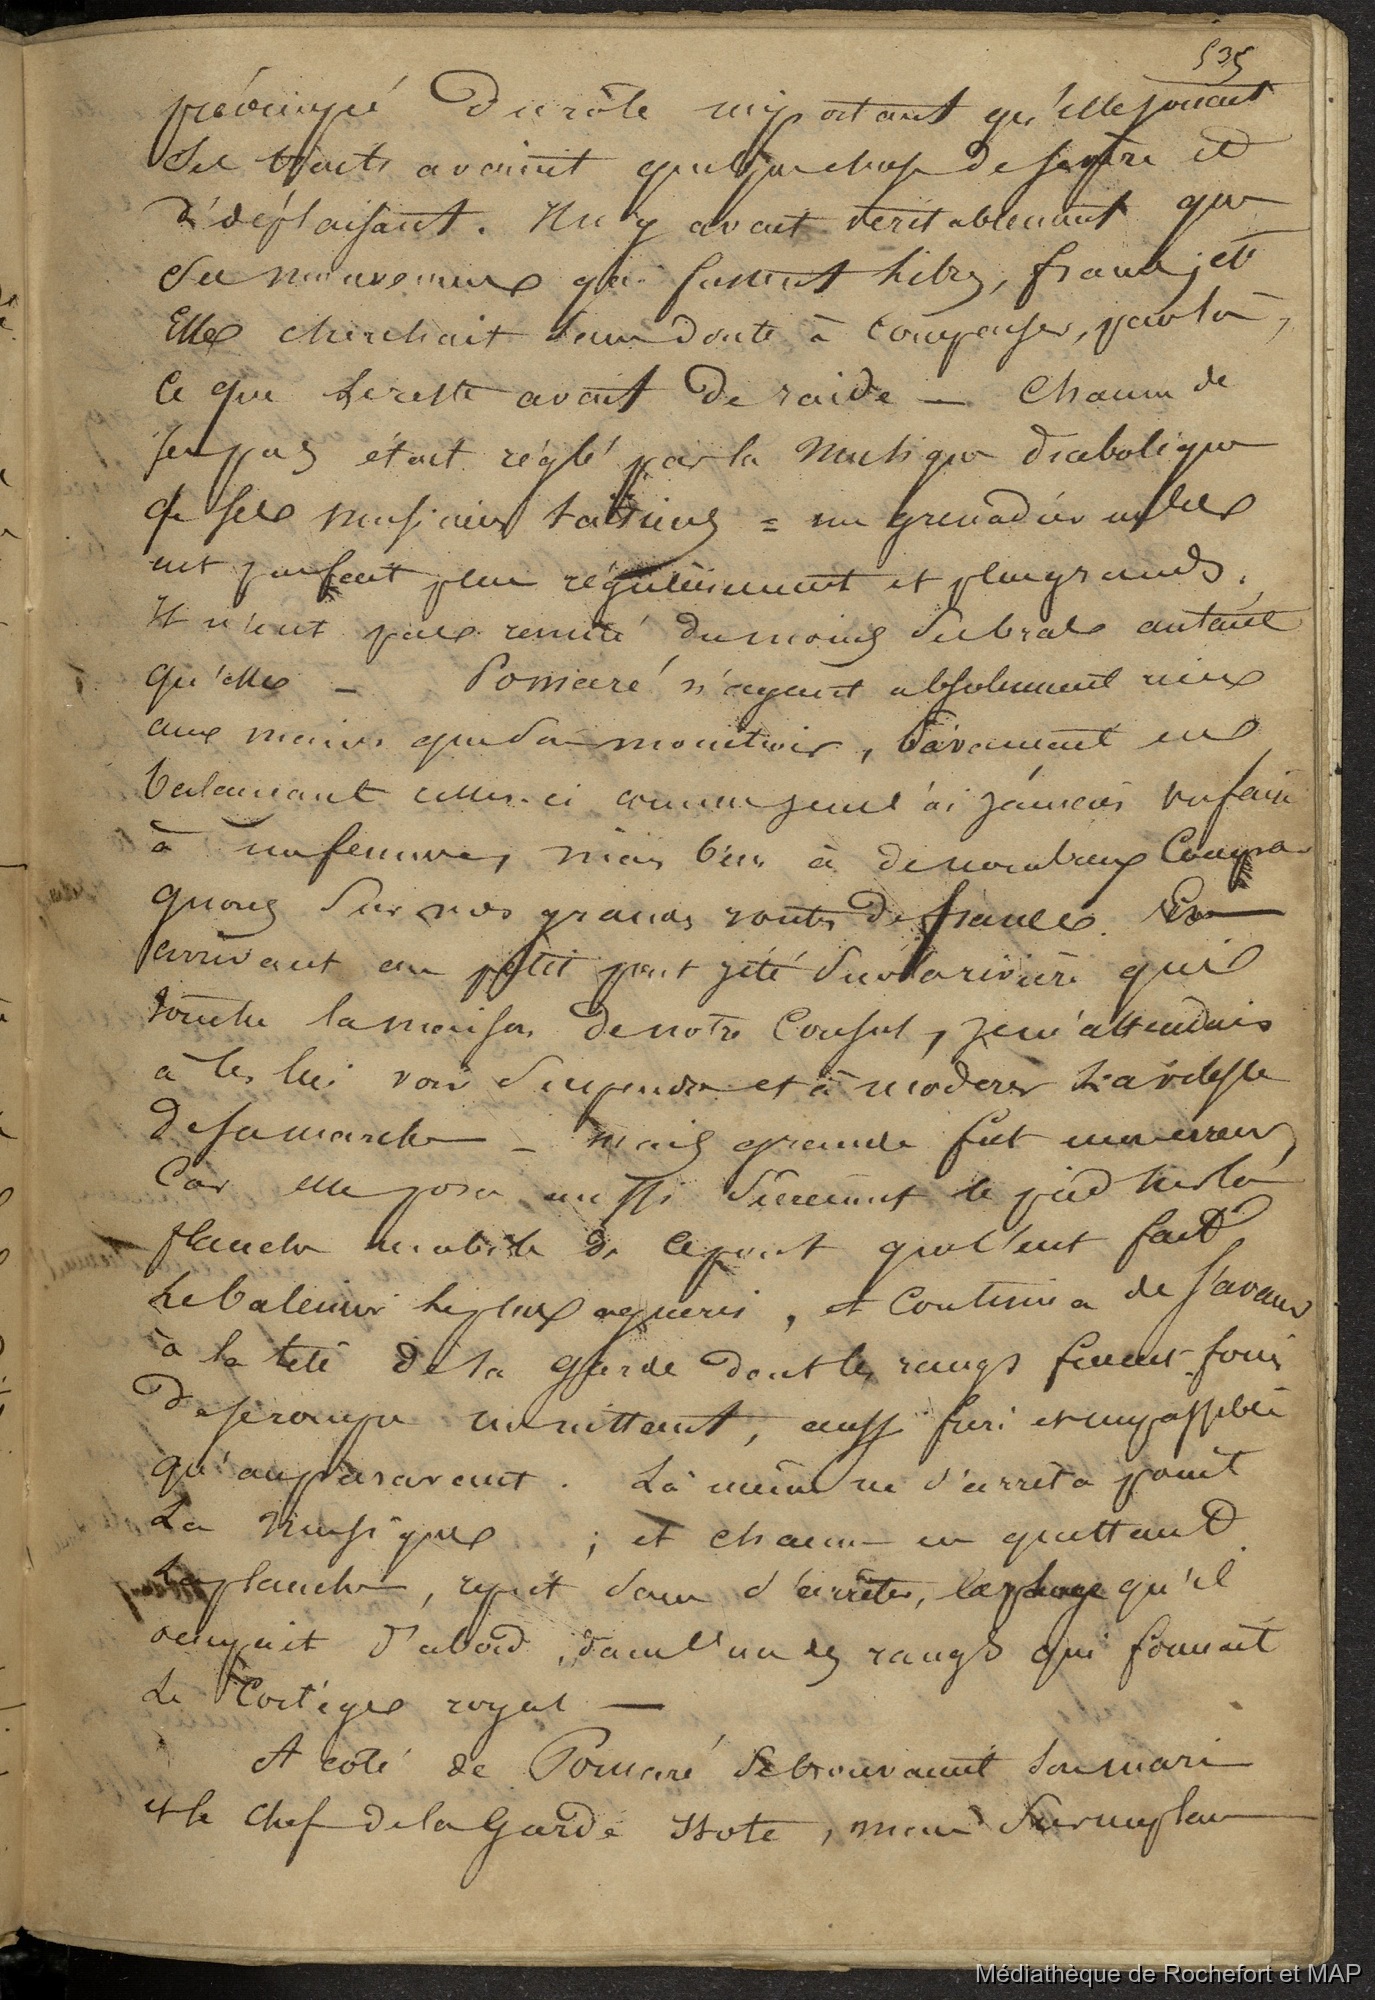 535
préoccupé du rôle important qu'elle jouait
ses traits avaient quelque chose de sévère et
de déplaisant. Il n'y avait véritablement que
ses mouvemens qui fussent libres, francs, et
Elle cherchait sans doute à compenser, par là,
ce que le reste avait de raide — Chacun de
ses pas était réglé par la musique diabolique
de ses musiciens taïtiens = un grenadier
eut fait plus régulièrement et plus grands.
Il n'eut pas remué du moins les bras autant
qu'elle — Pomaré n'ayant absolument rien
aux mains que son mouchoir, s'avançait en
balançant celles-ci comme je ne l'ai jamais vu faire
à une femme, mais bien à de nombreux compa-
gnons sur nos grandes routes de france. En
arrivant au petit pont jeté sur la rivière qui
touche la maison de notre Consul, je m'attendais
à les lui voir suspendre et à modérer la vitesse
de sa marche — mais grande fut mon erreur,
Car elle posa aussi sûrement le pied sur la
planche mobile de ce pont que l'eut fait
le baleinier le plus aguerri, et continua de s'avancer
à la tête de sa garde dont les rangs furent forcés
de se rompre un instant, aussi
qu'auparavant. Là même ne s'arrêta point
La musique ; et chacun en quittant
la planche, reprit sans s'arrêter, la place qu'il
occupait d'abord, dans l'un des rangs qui formait
Le Cortège royal —
A côté de Pomaré se trouvaient son mari
et le chef de la Garde Itote, mais sur un plan
Médiathèque de Rochefort et MAP